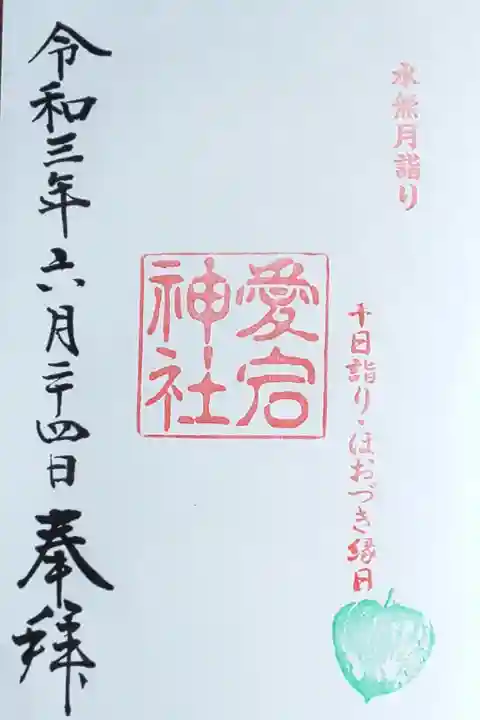 水無月詣り
千日詣り・ほおづき縁日
愛宕
神社
令和三年六月二十四日 奉拜